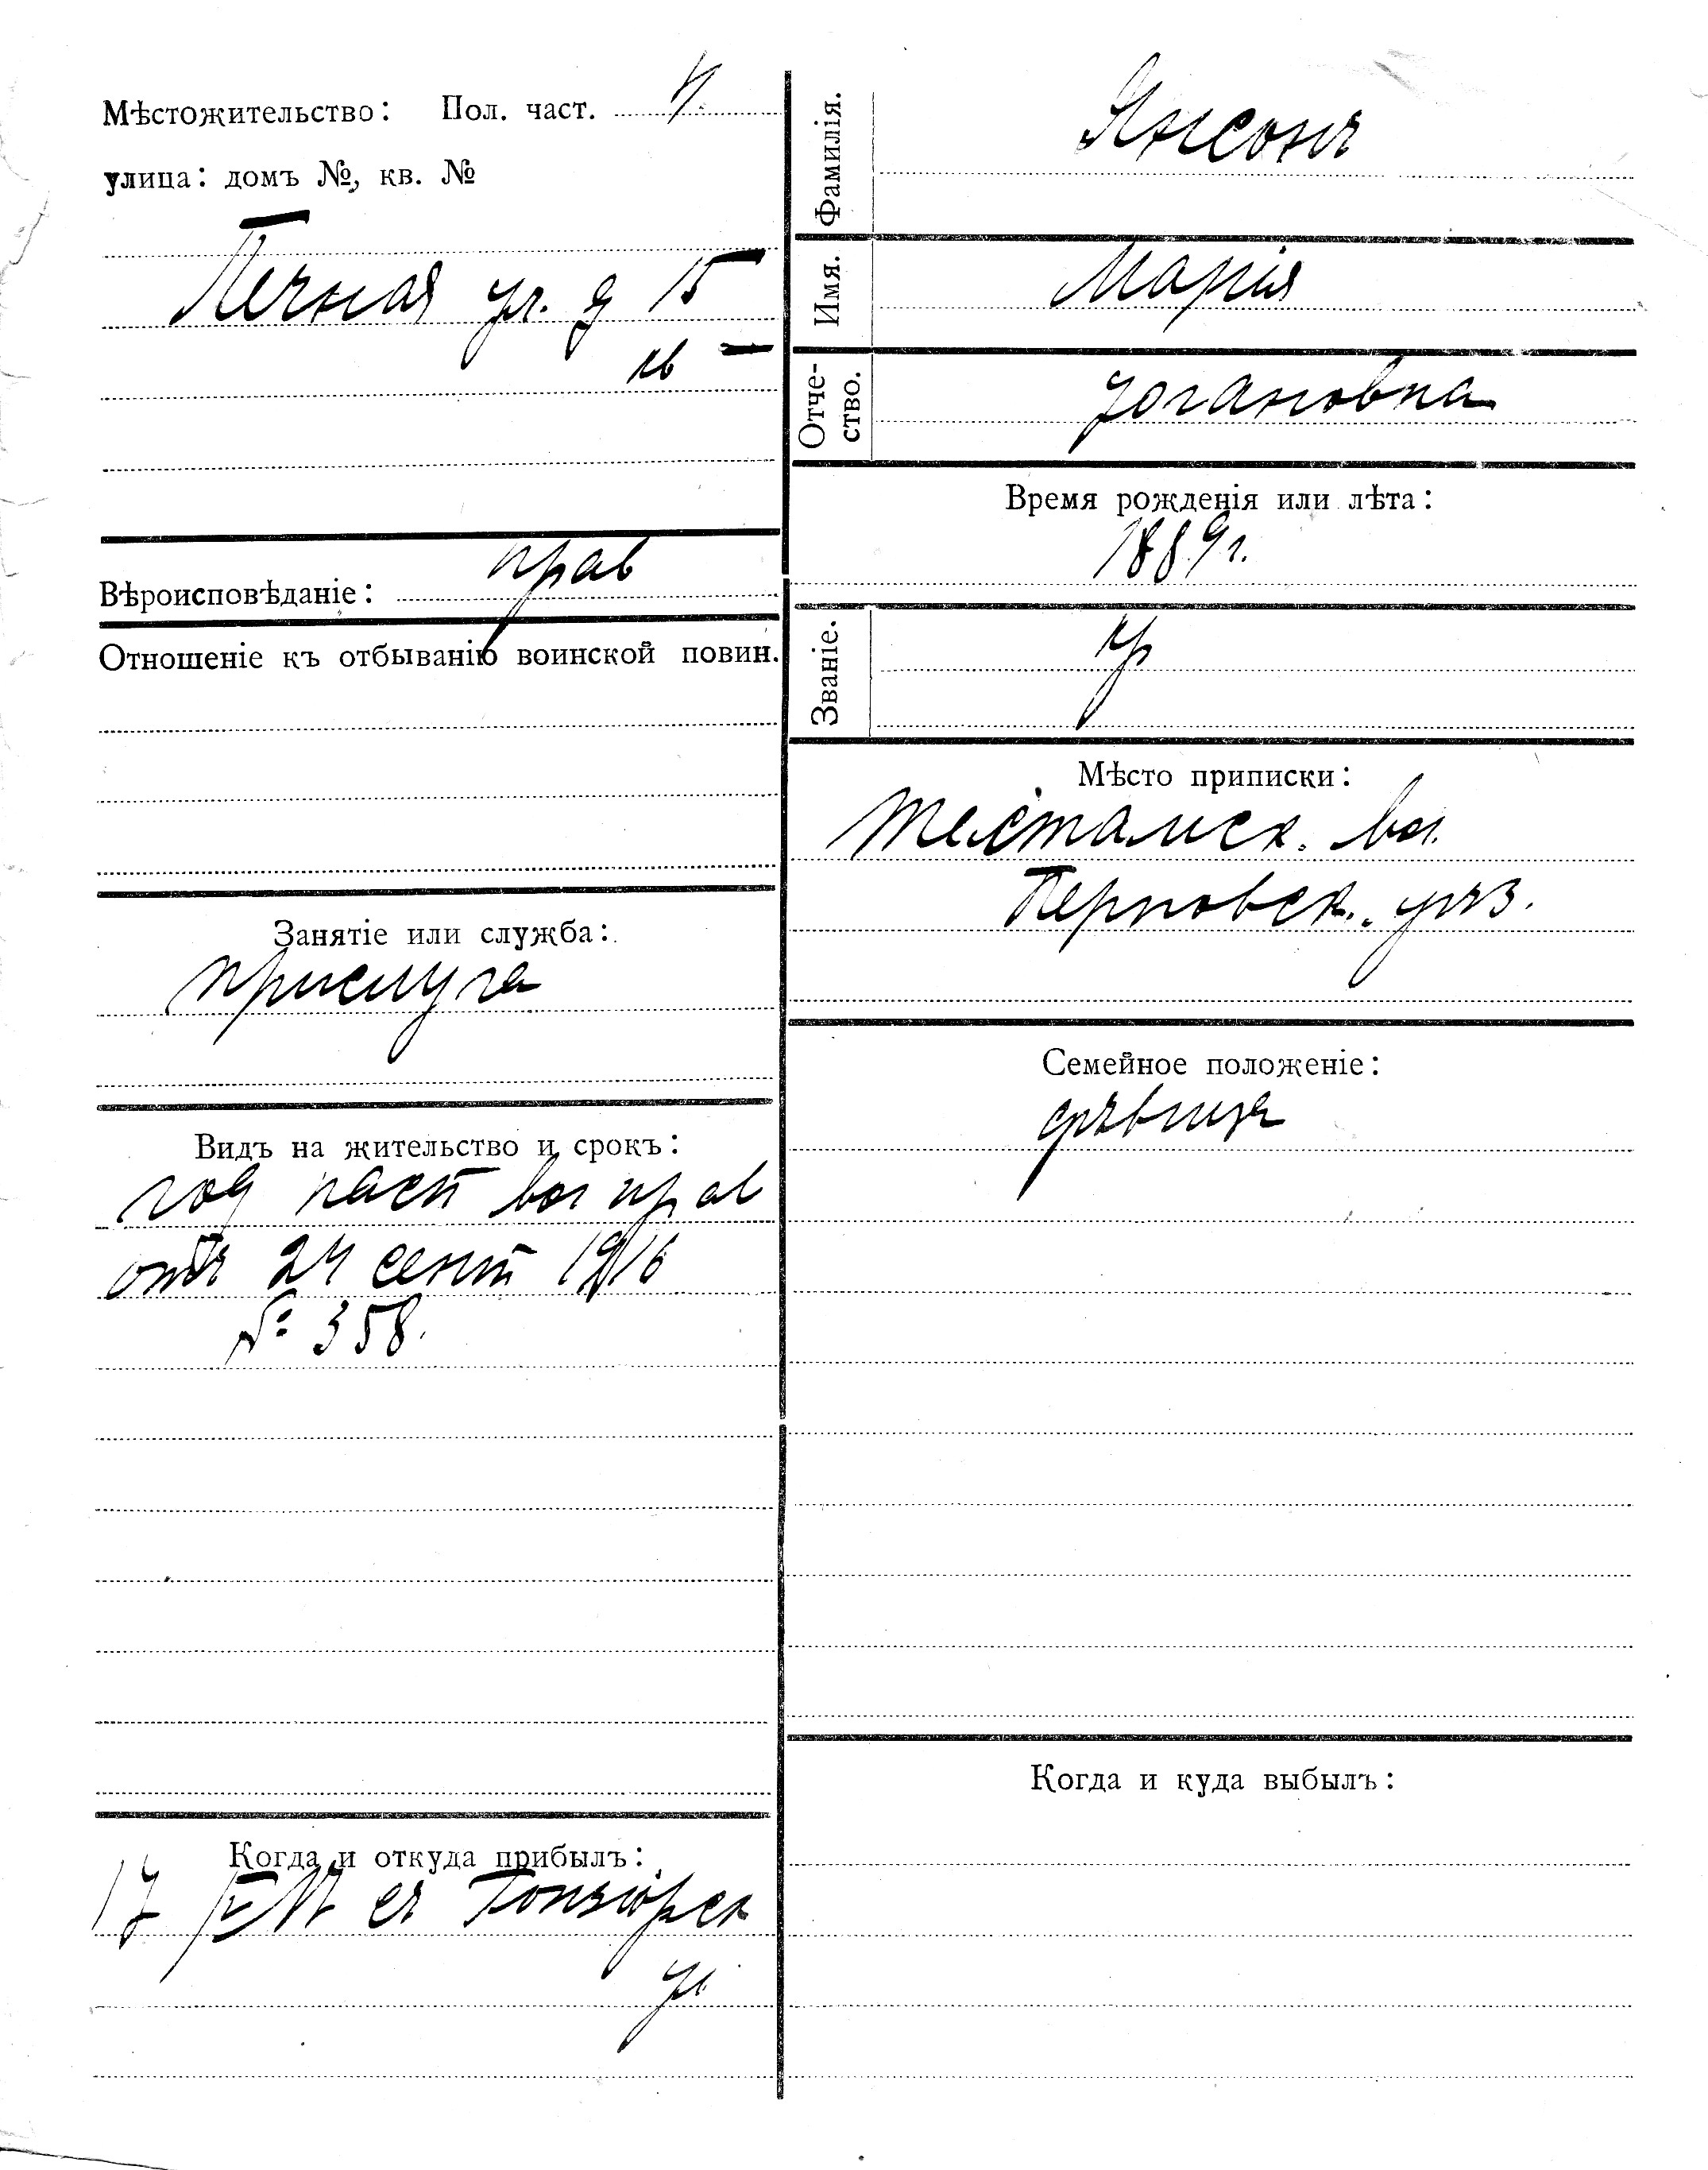 Мѣстожительство: Пол. част. 4
улица: домъ №, кв. №
Печная ул. д 15
кв —
Вѣроисповѣданіе: прав
Отношеніе къ отбыванію воинской повин.
Занятіе или служба:
прислуга
Видъ на жительство и срокъ:
год пасп вол прав
отъ 24 сент 1916
№ 358.
Когда и откуда прибылъ:
17 съ
ул
Фамилія. Янсонъ
Имя. Марія
Отче-
ство. Іогановна
Время рожденія или лѣта:
1889 г.
Званіе. кр
Мѣсто приписки:
Тестамск. вол.
Перновск. уѣз.
Семейное положеніе:
дѣвица
Когда и куда выбылъ: